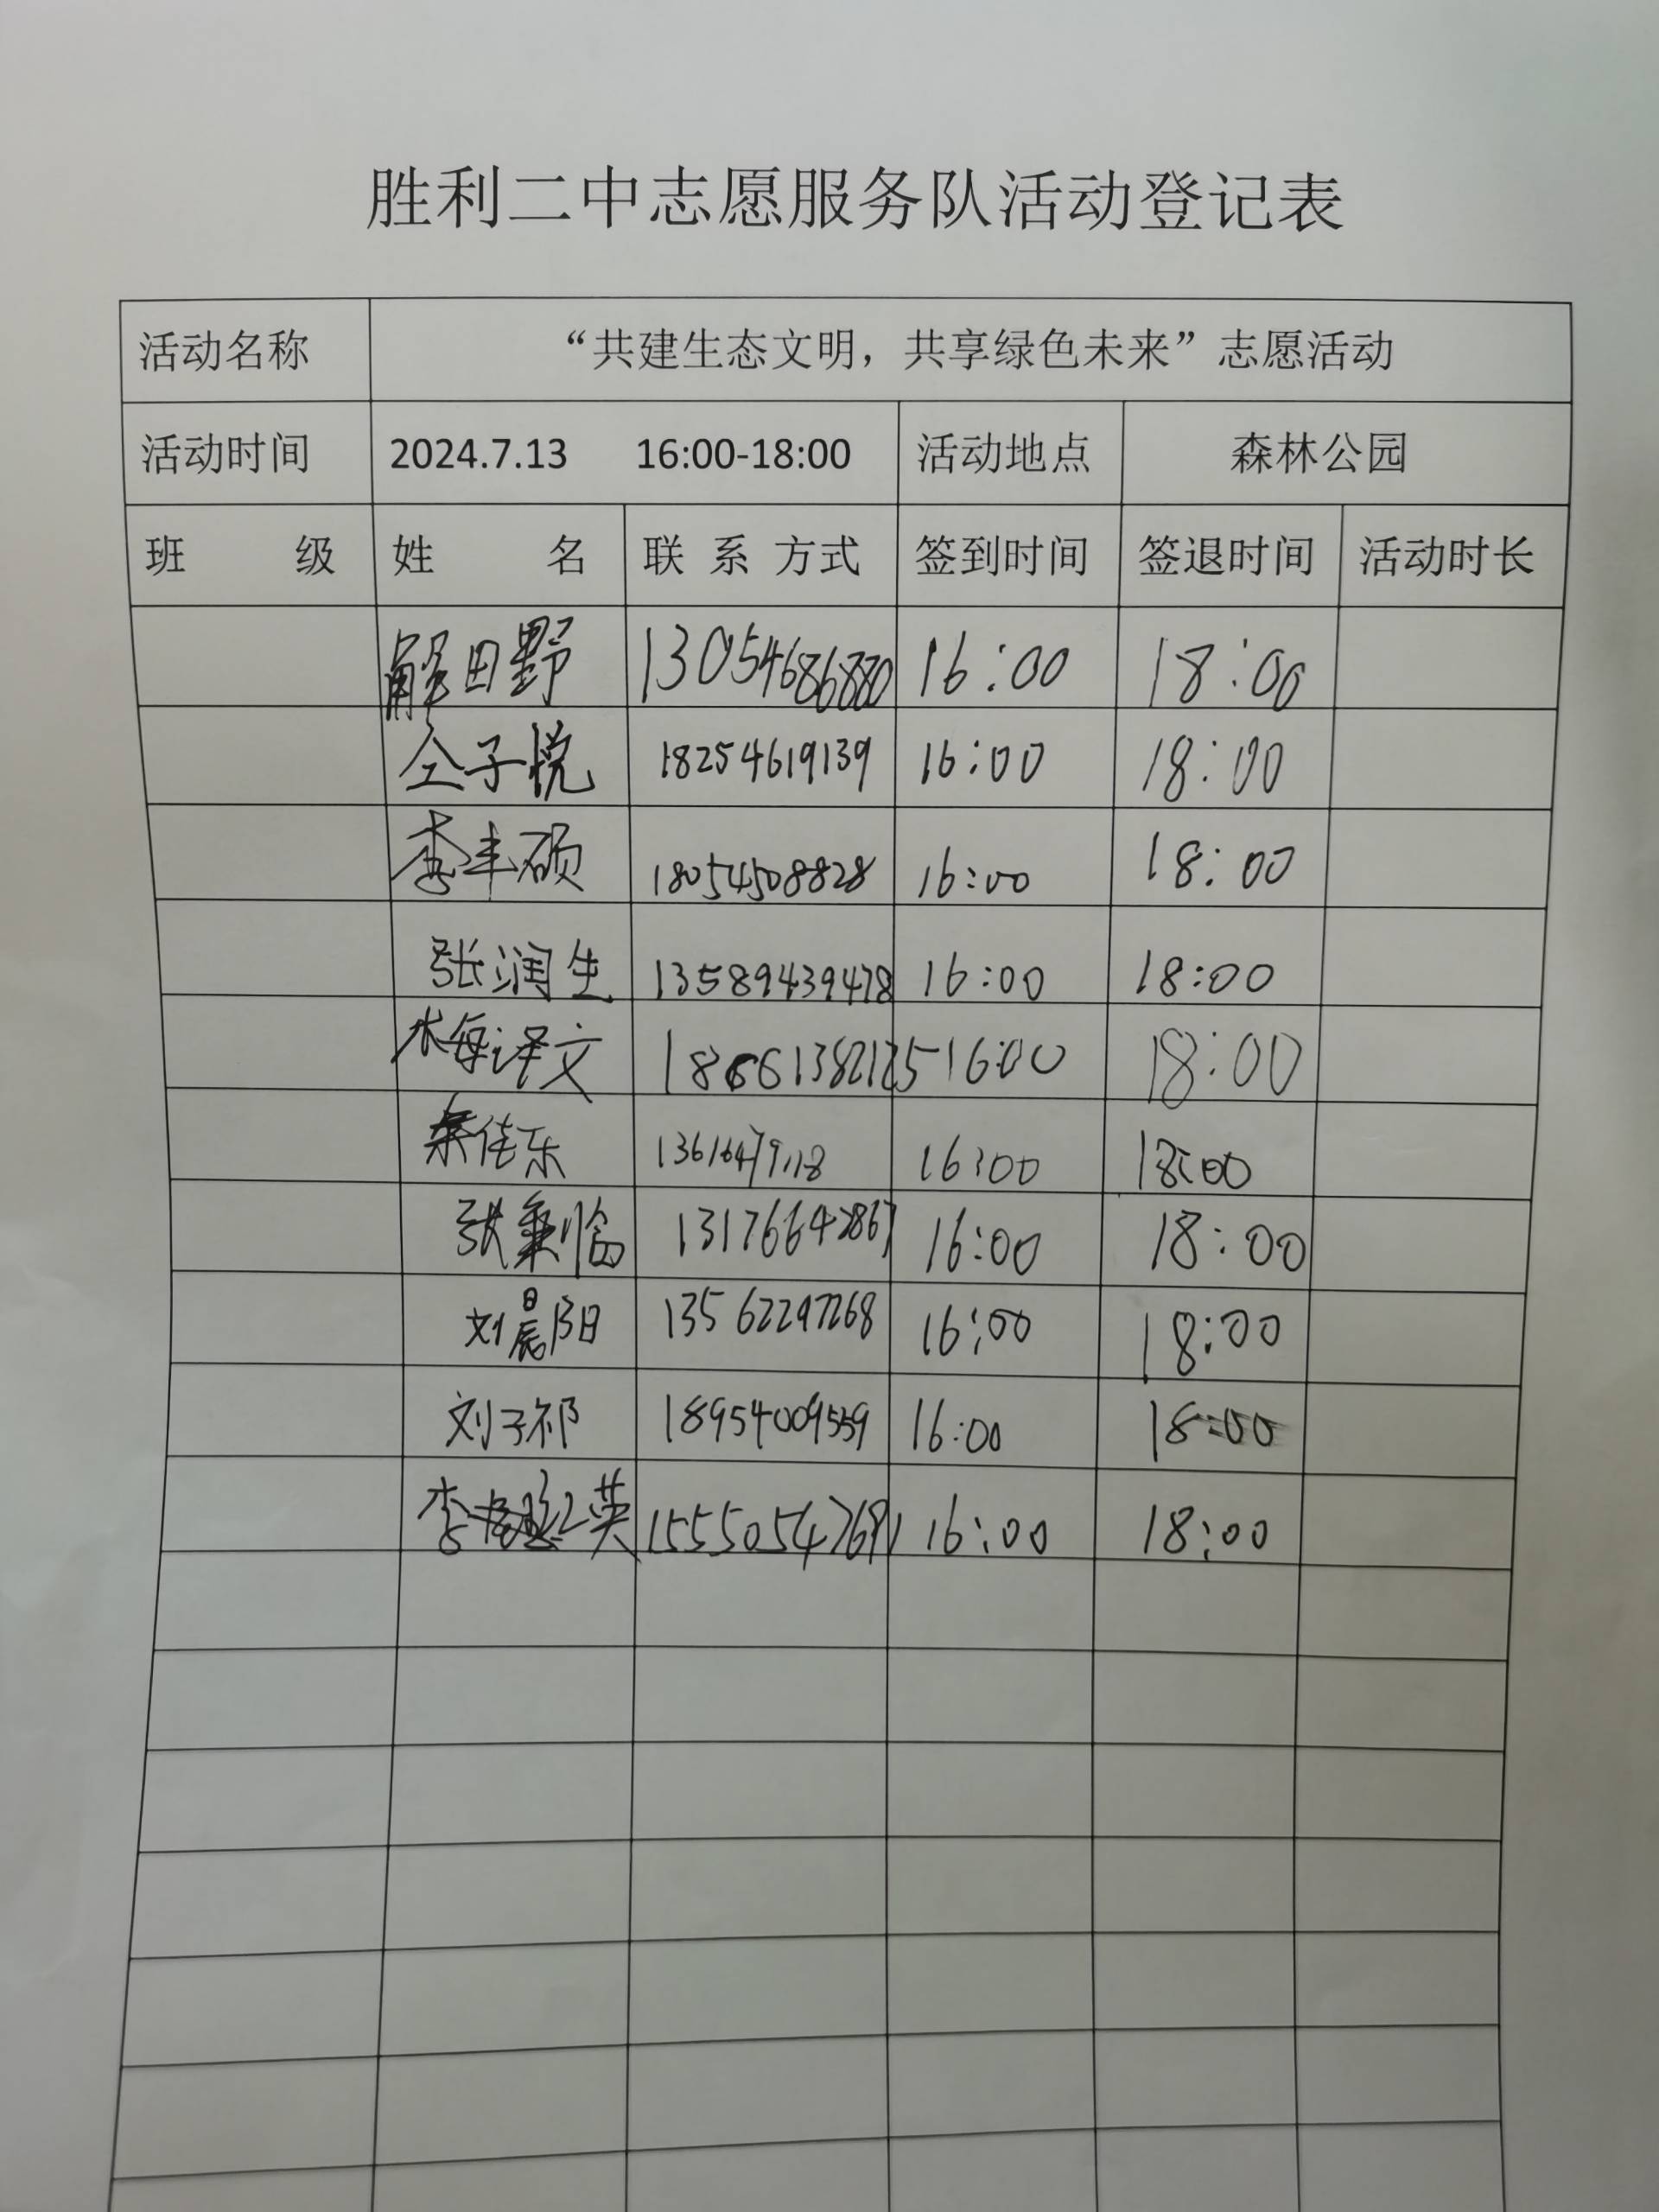 胜利二中志愿服务队活动登记表
活动名称 “共建生态文明，共享绿色未来”志愿活动
活动时间 2024.7.13 16:00-18:00 活动地点 森林公园
班 级 姓 名 联 系 方式 签到时间 签退时间 活动时长
解田野 13054686880 16:00 18:00
仝子悦 18254619139 16:00 18:00
李丰硕 18054508828 16:00 18:00
张润生 13589439478 16:00 18:00
梅译文 18661382125 16:00 18:00
佳乐 16:00 18:00
张 13176642867 16:00 18:00
刘晨阳 13562297268 16:00 18:00
刘子祁 18954009559 16:00 18:00
李 英 15550547691 16:00 18:00